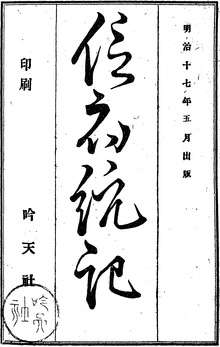 明治十七年五月出版
信府統記
印刷 吟天社
吟天社